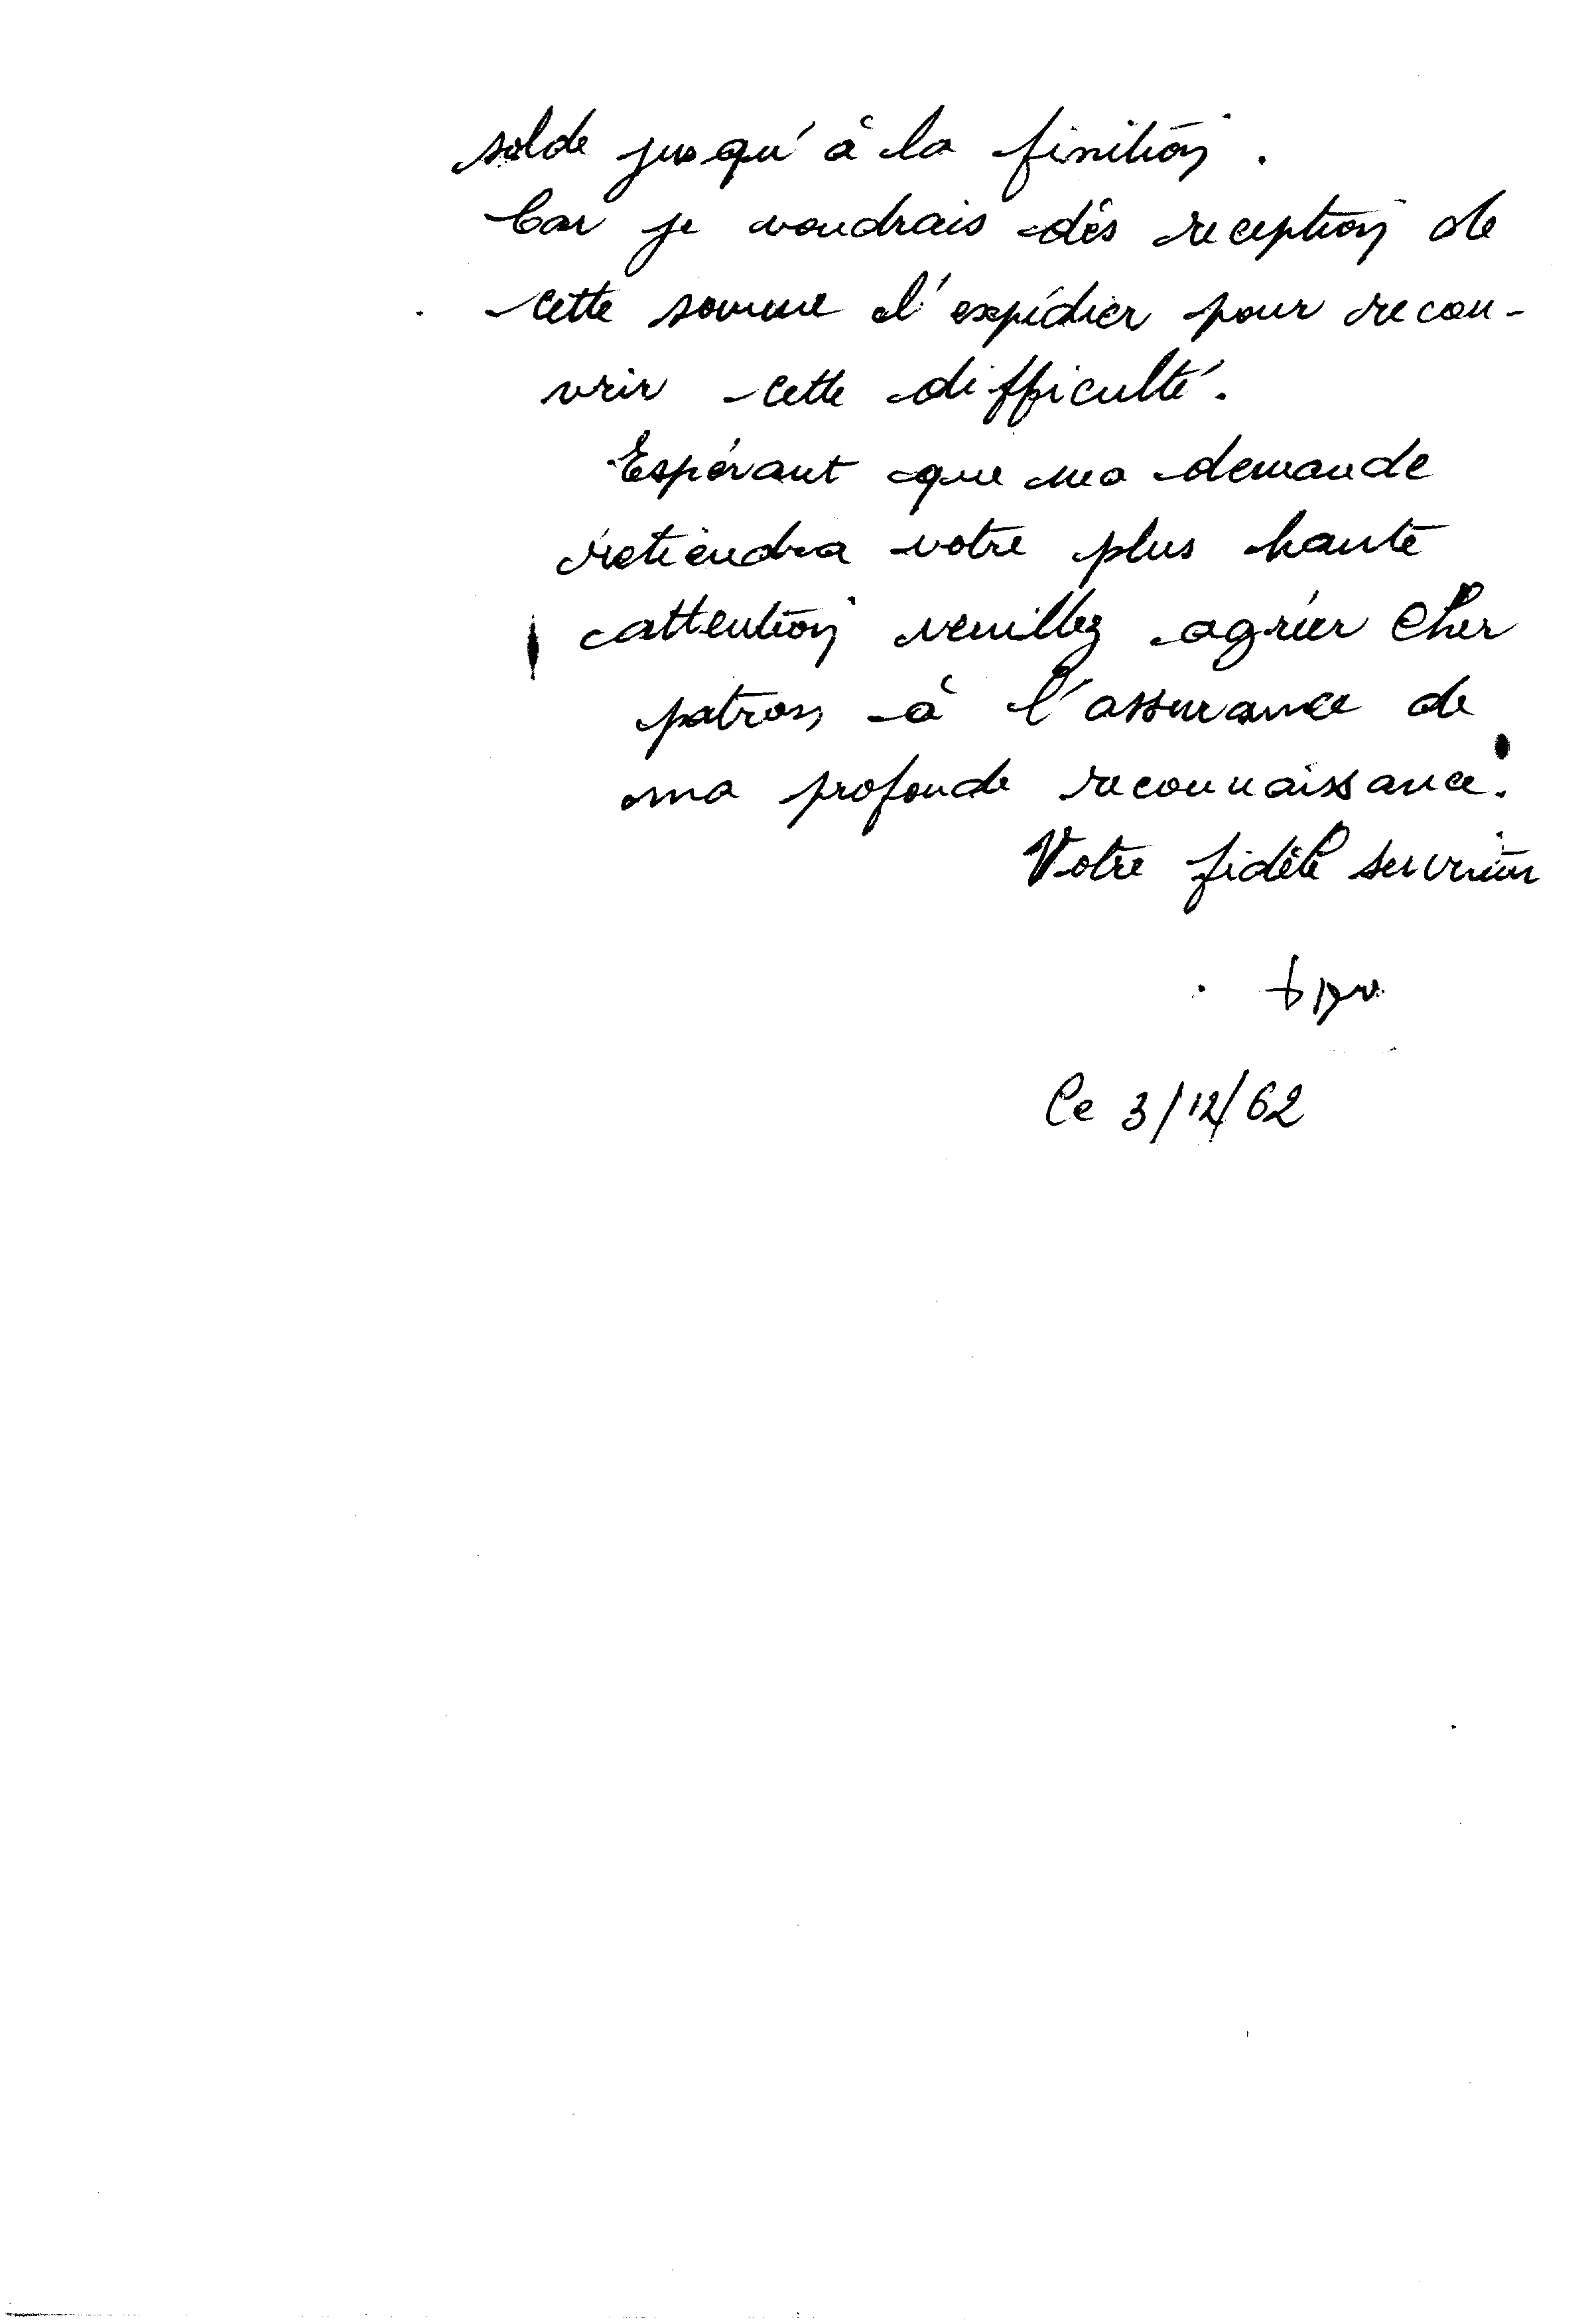 solde jusqu'à la finition.
Car je voudrais dès reception de
cette somme l'expédier pour recou-
vrir cette difficulté.
Espérant que ma demande
retiendra votre plus haute
attention veuillez agréer Cher
patron à l'assurance de
ma profonde reconnaissance.
Votre fidèle
Ce 3/12/62